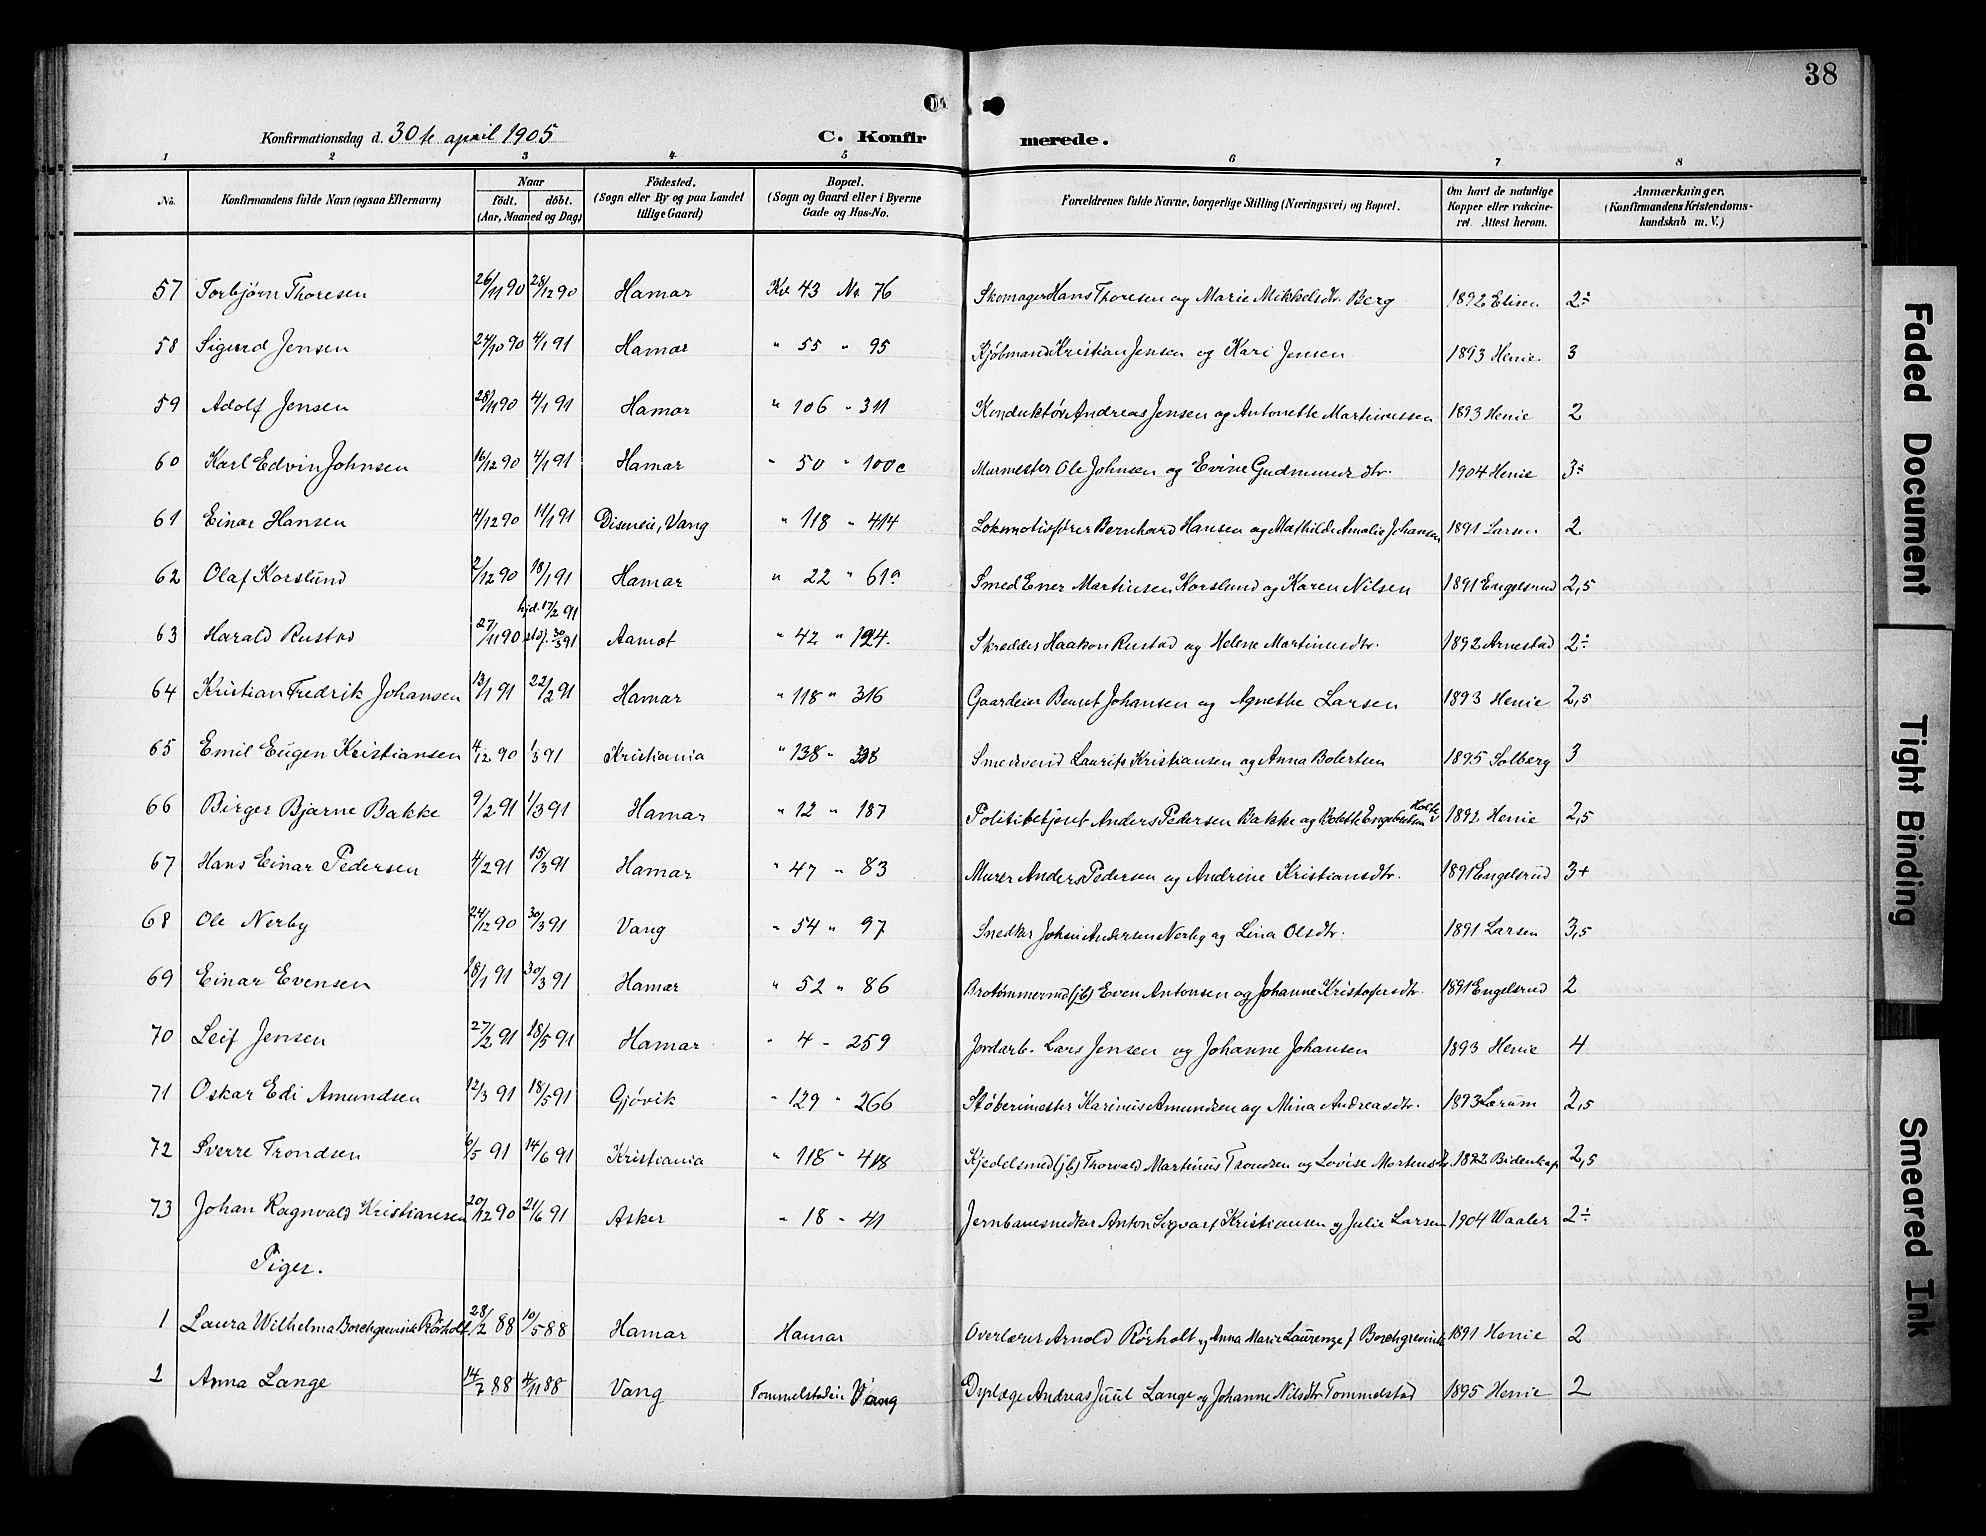 38
Konfirmationsdag d. 30te april 1905 C. Konfir merede.
1 2 3 4 5 6 7 8
No. Konfirmandens fulde Navn (ogsaa Efternavn) Naar født. døbt. (Aar, Maaned og Dag) Fødested. (Sogn eller By og paa Landet tillige Gaard) Bopæl. (Sogn og Gaard eller i Byerne Gade og Hus-No. Forældrenes fulde Navne, borgerlige Stilling (Næringsvei) og Bopæl. Om havt de naturlige Kopper eller vakcineret. Attest herom. Anmærkninger. (Konfirmandens Kristendomskundskab m. V.)
57 Torbjørn Thoresen 26/11 90 28/12 90 Hamar Kv 43 No 76 Skomager Hans Thoresen og Marie Mikkelsdtr. Berg 1892 Elisen 2÷
58 Sigurd Jensen 24/10 90 4/1 91 Hamar " 55 " 95 Kjøbmand Kristian Jensen og Kari Jensen 1893 Henie. 3
59 Adolf Jensen 28/11 90 4/1 91 Hamar " 106 " 311 Konduktør Andreas Jensen og Antonette Martinussen 1893 Henie 2
60 Karl Edvin Johnsen 16/12 90 4/1 91 Hamar " 50 " 100c Murmester Ole Johnsen og Evine Gudmundsdtr. 1904 Henie 3÷
61 Einar Hansen 4/12 90 11/1 91 Diseneie, Vang " 118 " 414 Lokomotivfører Bernhard Hansen og Mathilde Amalie Johansen 1891 Larsen 2
62 Olaf Korslund 2/12 90 18/1 91 Hamar " 22 " 61a Smed Ener Martinsen Korslund og Karen Nilsen 1891 Engelsrud 2,5
63 Harald Rustad 27/11 90 hjd. 17/2 91 stdf. 30/3 91 Aamot " 42 " 124. Skredder Haakon Rustad og Helene Martinusdtr. 1892 Arnestad 2÷
64 Kristian Fredrik Johansen 13/1 91 22/2 91 Hamar " 118 " 316 Gaardeier Berset Johansen og Agnethe Larsen 1893 Henie 2,5
65 Emil Eugen Kristiansen 4/12 90 1/3 91 Kristiania " 138 " 338 Smedsvend Laurits Kristiansen og Anna Bolertsen 1895 Solberg 3
66 Birger Bjarne Bakke 9/2 91 1/3 91 Hamar " 12 " 187 Politibetjent Anders Pedersen Bakke og Bolette Engebretsen Holte 1892 Henie 2,5
67 Hans Einar Pedersen 4/2 91 15/3 91 Hamar " 47 " 83 Murer Anders Pedersen og Andrine Kristiansdtr. 1891 Engelsrud 3+
68 Ole Nerby 24/12 90 30/3 91 Vang " 54 " 97 Snedker Johan Andersen Nerby og Lina Olsdtr. 1891 Larsen 3,5
69 Einar Evensen 18/1 91 30/3 91 Hamar " 52 " 86 Brotømmermd (jb) Even Antonsen og Johanne Kristofersdtr. 1891 Engelsrud 2
70 Leif Jensen 27/2 91 18/5 91 Hamar " 4 " 259 Jordarb. Lars Jensen og Johanne Johansen 1893 Henie 4
71 Oskar Edi Amundsen 12/3 91 18/5 91 Gjøvik " 129 " 266 Støberimester Karinus Amundsen og Mina Andreasdtr. 1893 Lærum 2,5
72 Sverre Trondsen 6/5 91 14/6 91 Kristiania " 118 " 418 Kjedelsmed (jb) Thorvald Martinus Trondsen og Lovise Mortensdtr. 1892 Bidenkap 2,5
73 Johan Ragnvald Kristiansen 20/12 90 21/6 91 Asker " 18 " 41 Jernbanesnedker Anton Sigvart Kristiansen og Julie Larsen 1904 Waaler 2÷
Piger.
1 Laura Wilhelma Borchgrevink Rørholt 28/2 88 10/5 88 Hamar Hamar Overlærer Arnold Rørholt og Anna Marie Laurenze f Borchgrevink 1891 Henie 2
2 Anna Lange 14/7 88 4/11 88 Vang Tommelstadeie Vang Dyrlæge Andreas Juul Lange og Johanne Nilsdtr Tommelstad 1895 Henie 2
Faded Document
Tight Binding
Smeared Ink